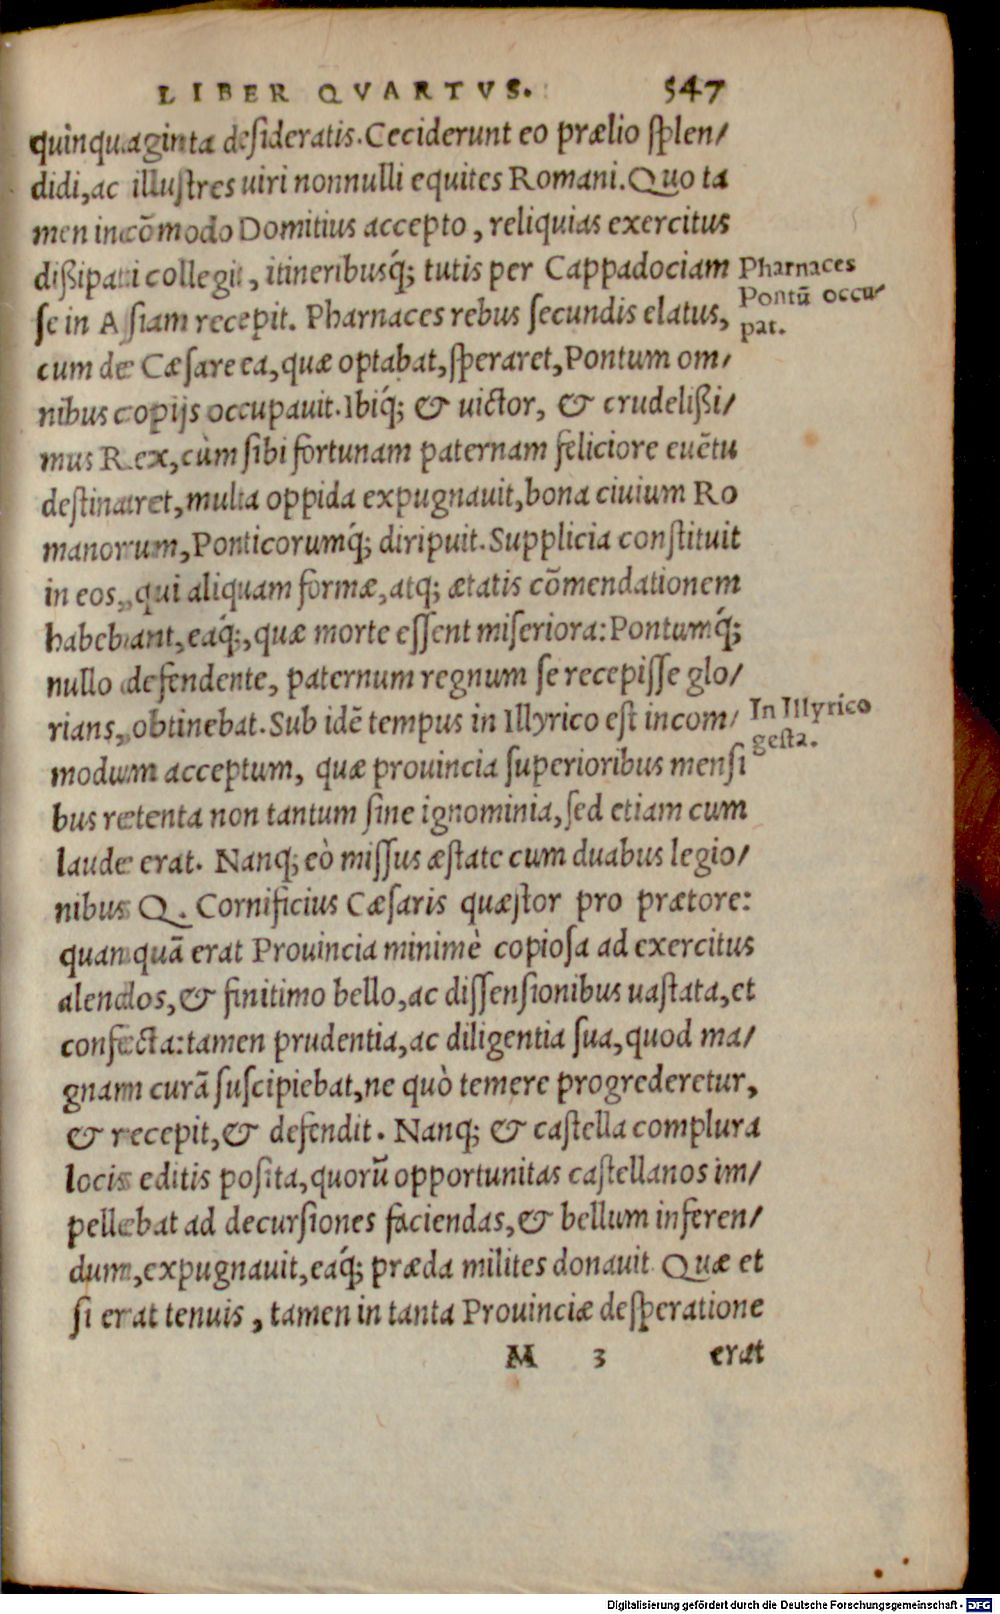 LIBER QVARTVS. 547
quinquaginta desideratis. Ceciderunt eo prælio splen/
didi, ac illustres uiri nonnulli equites Romani. Quo ta
men incõmodo Domitius accepto, reliquias exercitus
dißipati collegit, itineribusq́; tutis per Cappadociam
se in Asiam recepit. Pharnaces rebus secundis elatus,
Pharnaces
Pontũ occu-
pat.
cum de Cæsare ea, quæ optabat, speraret, Pontum om/
nibus copijs occupauit. Ibiq́; & uictor, & crudelißi/
mus Rex, cùm sibi fortunam paternam feliciore euẽtu
destinaret, multa oppida expugnauit, bona ciuium Ro
manorum, Ponticorumq́; diripuit. Supplicia constituit
in eos, qui aliquam formæ, atq; ætatis cõmendationem
habebant, eaq́;, quæ morte essent miseriora: Pontumq́;
nullo defendente, paternum regnum se recepisse glo/
rians, obtinebat. Sub idẽ tempus in Illyrico est incom/
In Illyrico
gesta.
modum acceptum, quæ prouincia superioribus mensi
bus retenta non tantum sine ignominia, sed etiam cum
laude erat. Nanq; eò missus æstate cum duabus legio/
nibus Q. Cornificius Cæsaris quæstor pro prætore:
quamquã erat Prouincia minimè copiosa ad exercitus
alendos, & finitimo bello, ac dissensionibus uastata, et
confecta: tamen prudentia, ac diligentia sua, quod ma/
gnam curã suscipiebat, ne quò temere progrederetur,
& recepit, & defendit. Nanq; & castella complura
locis editis posita, quorũ opportunitas castellanos im/
pellebat ad decursiones faciendas, & bellum inferen/
dum, expugnauit, eaq́; præda milites donauit. Quæ et
si erat tenuis, tamen in tanta Prouinciæ desperatione
M 3 erat
Digitalisierung gefördert durch die Deutsche Forschungsgemeinschaft - DFG